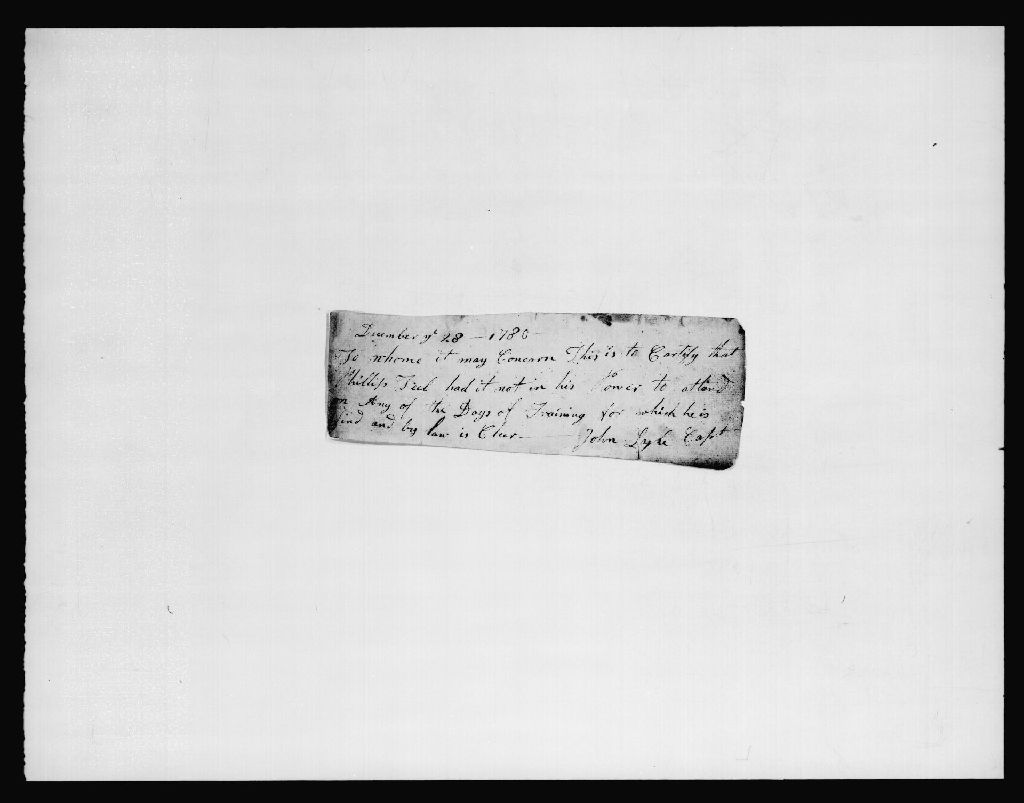 December ye 28 — 1786
To whome it may Concarn This is to Cartify that
Phillip Teel had it not in his Power to attend
on Any of the Days of Training for which he is
find and by law is Clear — John Lyle Capt